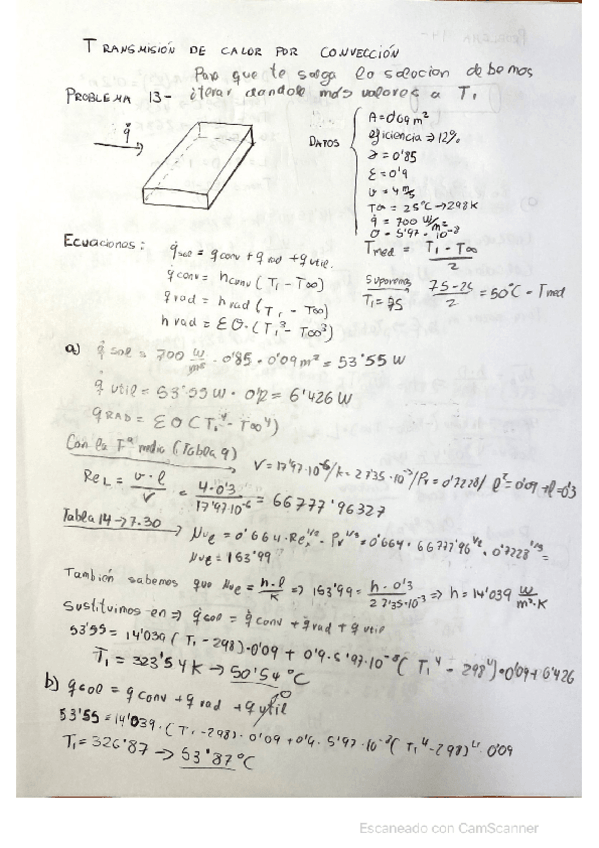 TRANSMISIÓN DE CALOR POR CONVECCIÓN
Para que te salga la solucion debemos
PROBLEMA 13- iterar dandole más valores a T₁
q̇
DATOS
A = 0'09 m²
eficiencia ⇒ 12%
α = 0'85
ε = 0'9
v = 4 m/s
T∞ = 25°C → 298K
q̇ = 700 W/m²
σ = 5'97 · 10⁻⁸
Tmed = T₁ - T∞ / 2
Ecuaciones: q̇sol = q̇conv + q̇rad + q̇util
q̇conv = hconv (T₁ - T∞)
q̇rad = hrad (T₁ - T∞)
hrad = εσ · (T₁³ - T∞³)
Suponemos T₁ = 75
75-25 / 2 = 50°C - Tmed
a) q̇sol = 700 W/m² · 0'85 · 0'09 m² = 53'55 W
q̇util = 53'55 W · 0'12 = 6'426 W
q̇RAD = εσ (T₁⁴ - T∞⁴)
Con la Tª media (Tabla 9) → V = 17'97·10⁻⁶ / k = 27'35·10⁻³ / Pr = 0'7228 / l² = 0'09 → l = 0'3
ReL = v · l / v = 4 · 0'3 / 17'97·10⁻⁶ = 66777'96327
Tabla 14 → 7.30 → Nuℓ = 0'664 · Reℓ^1/2 · Pr^1/3 = 0'664 · 66777'96^1/2 · 0'7228^1/3 =
Nuℓ = 153'99
También sabemos que Nuℓ = h · l / k ⇒ 153'99 = h · 0'3 / 27'35·10⁻³ ⇒ h = 14'039 W/m²·K
Sustituimos en ⇒ q̇sol = q̇conv + q̇rad + q̇util
53'55 = 14'039 (T₁ - 298) · 0'09 + 0'9 · 5'97·10⁻⁸ (T₁⁴ - 298⁴) · 0'09 + 6'426
T₁ = 323'54 K → 50'54 °C
b) q̇sol = q̇conv + q̇rad + q̇util 0
53'55 = 14'039 · (T₁ - 298) · 0'09 + 0'9 · 5'97·10⁻⁸ (T₁⁴ - 298)⁴ · 0'09
T₁ = 326'87 → 53'87 °C
Escaneado con CamScanner